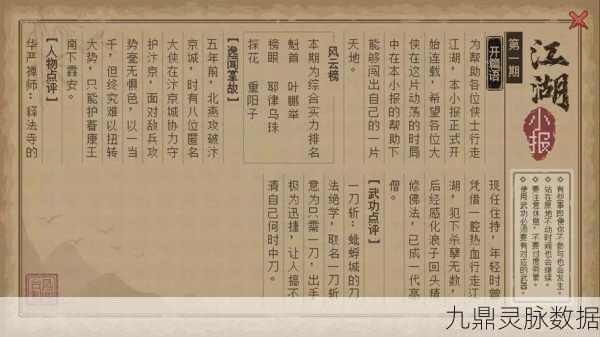 江湖小报
第一期
有些事即便你不参与也会发生。
站在原地不动时间也会继续。
要注意休息,不要过度劳累。
使用武功必须要有对应的武器。
开篇语
为帮助各位侠士行走
江湖,本小报正式开
始连载,希望各位大
侠在这片动荡的时局
中在本小报的帮助下
能够闯出自己的一片
天地。
风云榜
本期为综合实力排名
魁首 叶鹏举
榜眼 耶律乌珠
探花 重阳子
【逸闻掌故】
五年前,北燕攻破汴
京城,时有八位匿名
大侠在汴京城协力守
护汴京,面对敌兵攻
势毫无惧色,以一当
千,但终究难以扭转
大势,只能护着康王
南下霞安。
【人物点评】
华严禅师:释法寺的
现任住持,年轻时曾
凭借一腔热血行走江
湖,犯下杀孽无数,
后经感化浪子回头精
修佛法,已成一代高
僧。
【武功点评】
一刀斩:蚍蜉城的刀
法绝学,取名一刀斩
意为只需一刀,出手
极为迅捷,让人搞不
清自己何时中刀。
九鼎灵脉数据